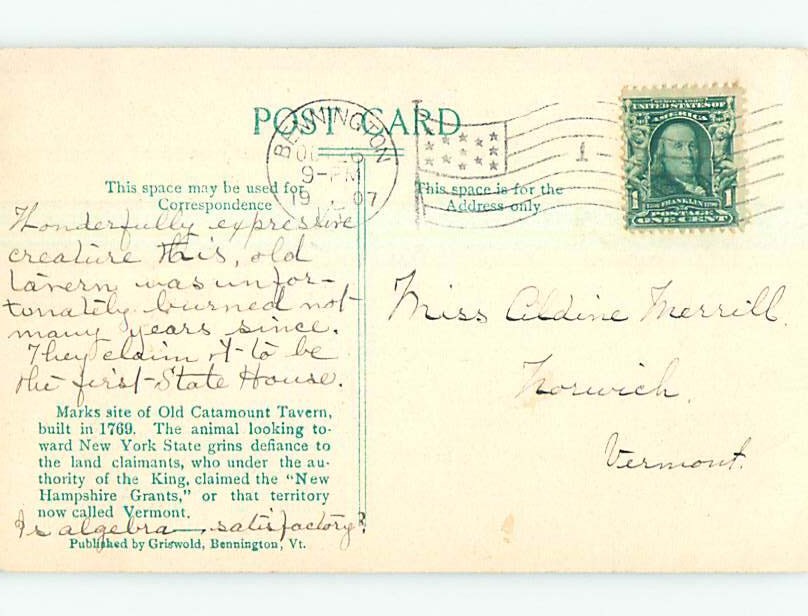 POST CARD
BENNINGTON
9-PM
19 07
1-
SERIES 1902
UNITED STATES OF
AMERICA
1 FRANKLIN 1
POSTAGE
ONE CENT
This space may be used for
Correspondence
This space is for the
Address only
Wonderfully expressive
creature this, old
tavern was unfor-
tunately burned not
many years since.
They claim it to be
the first State House.
Marks site of Old Catamount Tavern,
built in 1769. The animal looking to-
ward New York State grins defiance to
the land claimants, who under the au-
thority of the King, claimed the "New
Hampshire Grants," or that territory
now called Vermont.
Is algebra satisfactory?
Published by Griswold, Bennington, Vt.
Miss Aldine Merrill.
Norwich.
Vermont.